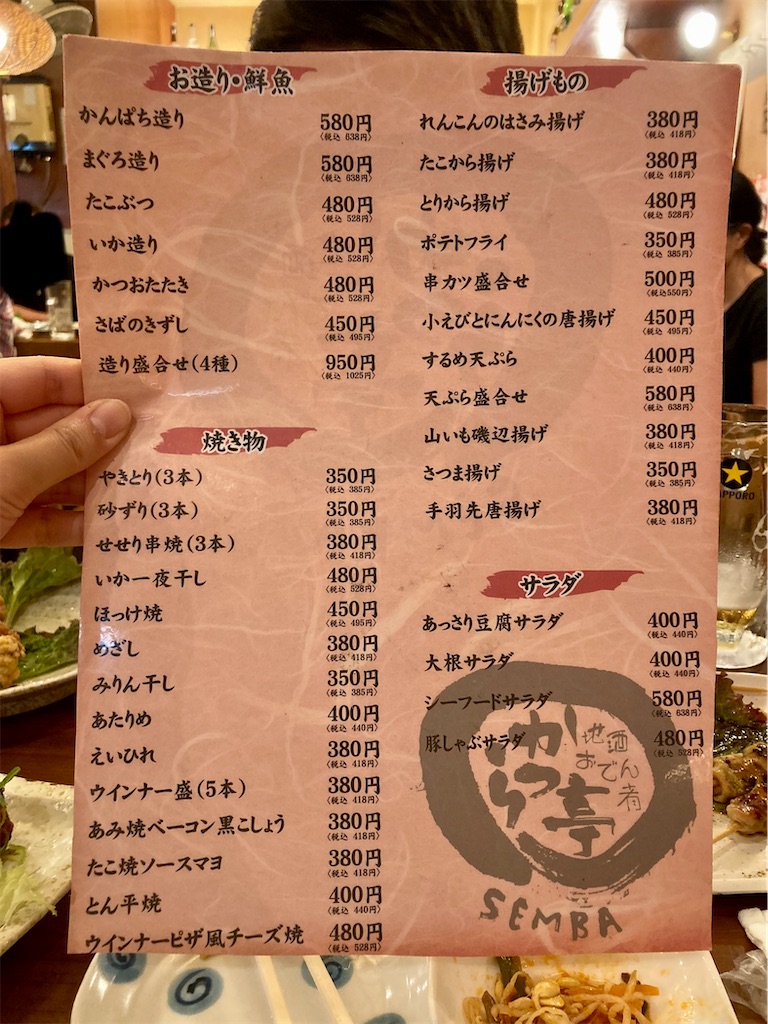 お造り・鮮魚
かんぱち造り 580円
〈税込 638円〉
まぐろ造り 580円
〈税込 638円〉
たこぶつ 480円
〈税込 528円〉
いか造り 480円
〈税込 528円〉
かつおたたき 480円
〈税込 528円〉
さばのきずし 450円
〈税込 495円〉
造り盛合せ(4種) 950円
〈税込 1025円〉
焼き物
やきとり(3本) 350円
〈税込 385円〉
砂ずり(3本) 350円
〈税込 385円〉
せせり串焼(3本) 380円
〈税込 418円〉
いか一夜干し 480円
〈税込 528円〉
ほっけ焼 450円
〈税込 495円〉
めざし 380円
〈税込 418円〉
みりん干し 350円
〈税込 385円〉
あたりめ 400円
〈税込 440円〉
えいひれ 380円
〈税込 418円〉
ウインナー盛(5本) 380円
〈税込 418円〉
あみ焼ベーコン黒こしょう 380円
〈税込 418円〉
たこ焼ソースマヨ 380円
〈税込 418円〉
とん平焼 400円
〈税込 440円〉
ウインナーピザ風チーズ焼 480円
〈税込 528円〉
揚げもの
れんこんのはさみ揚げ 380円
〈税込 418円〉
たこから揚げ 380円
〈税込 418円〉
とりから揚げ 480円
〈税込 528円〉
ポテトフライ 350円
〈税込 385円〉
串カツ盛合せ 500円
〈税込550円〉
小えびとにんにくの唐揚げ 450円
〈税込 495円〉
するめ天ぷら 400円
〈税込 440円〉
天ぷら盛合せ 580円
〈税込 638円〉
山いも磯辺揚げ 380円
〈税込 418円〉
さつま揚げ 350円
〈税込 385円〉
手羽先唐揚げ 380円
〈税込 418円〉
サラダ
あっさり豆腐サラダ 400円
〈税込 440円〉
大根サラダ 400円
〈税込 440円〉
シーフードサラダ 580円
〈税込 638円〉
豚しゃぶサラダ 480円
〈税込 528円〉
地酒
おでん
亭
SEMBA
SAPPORO